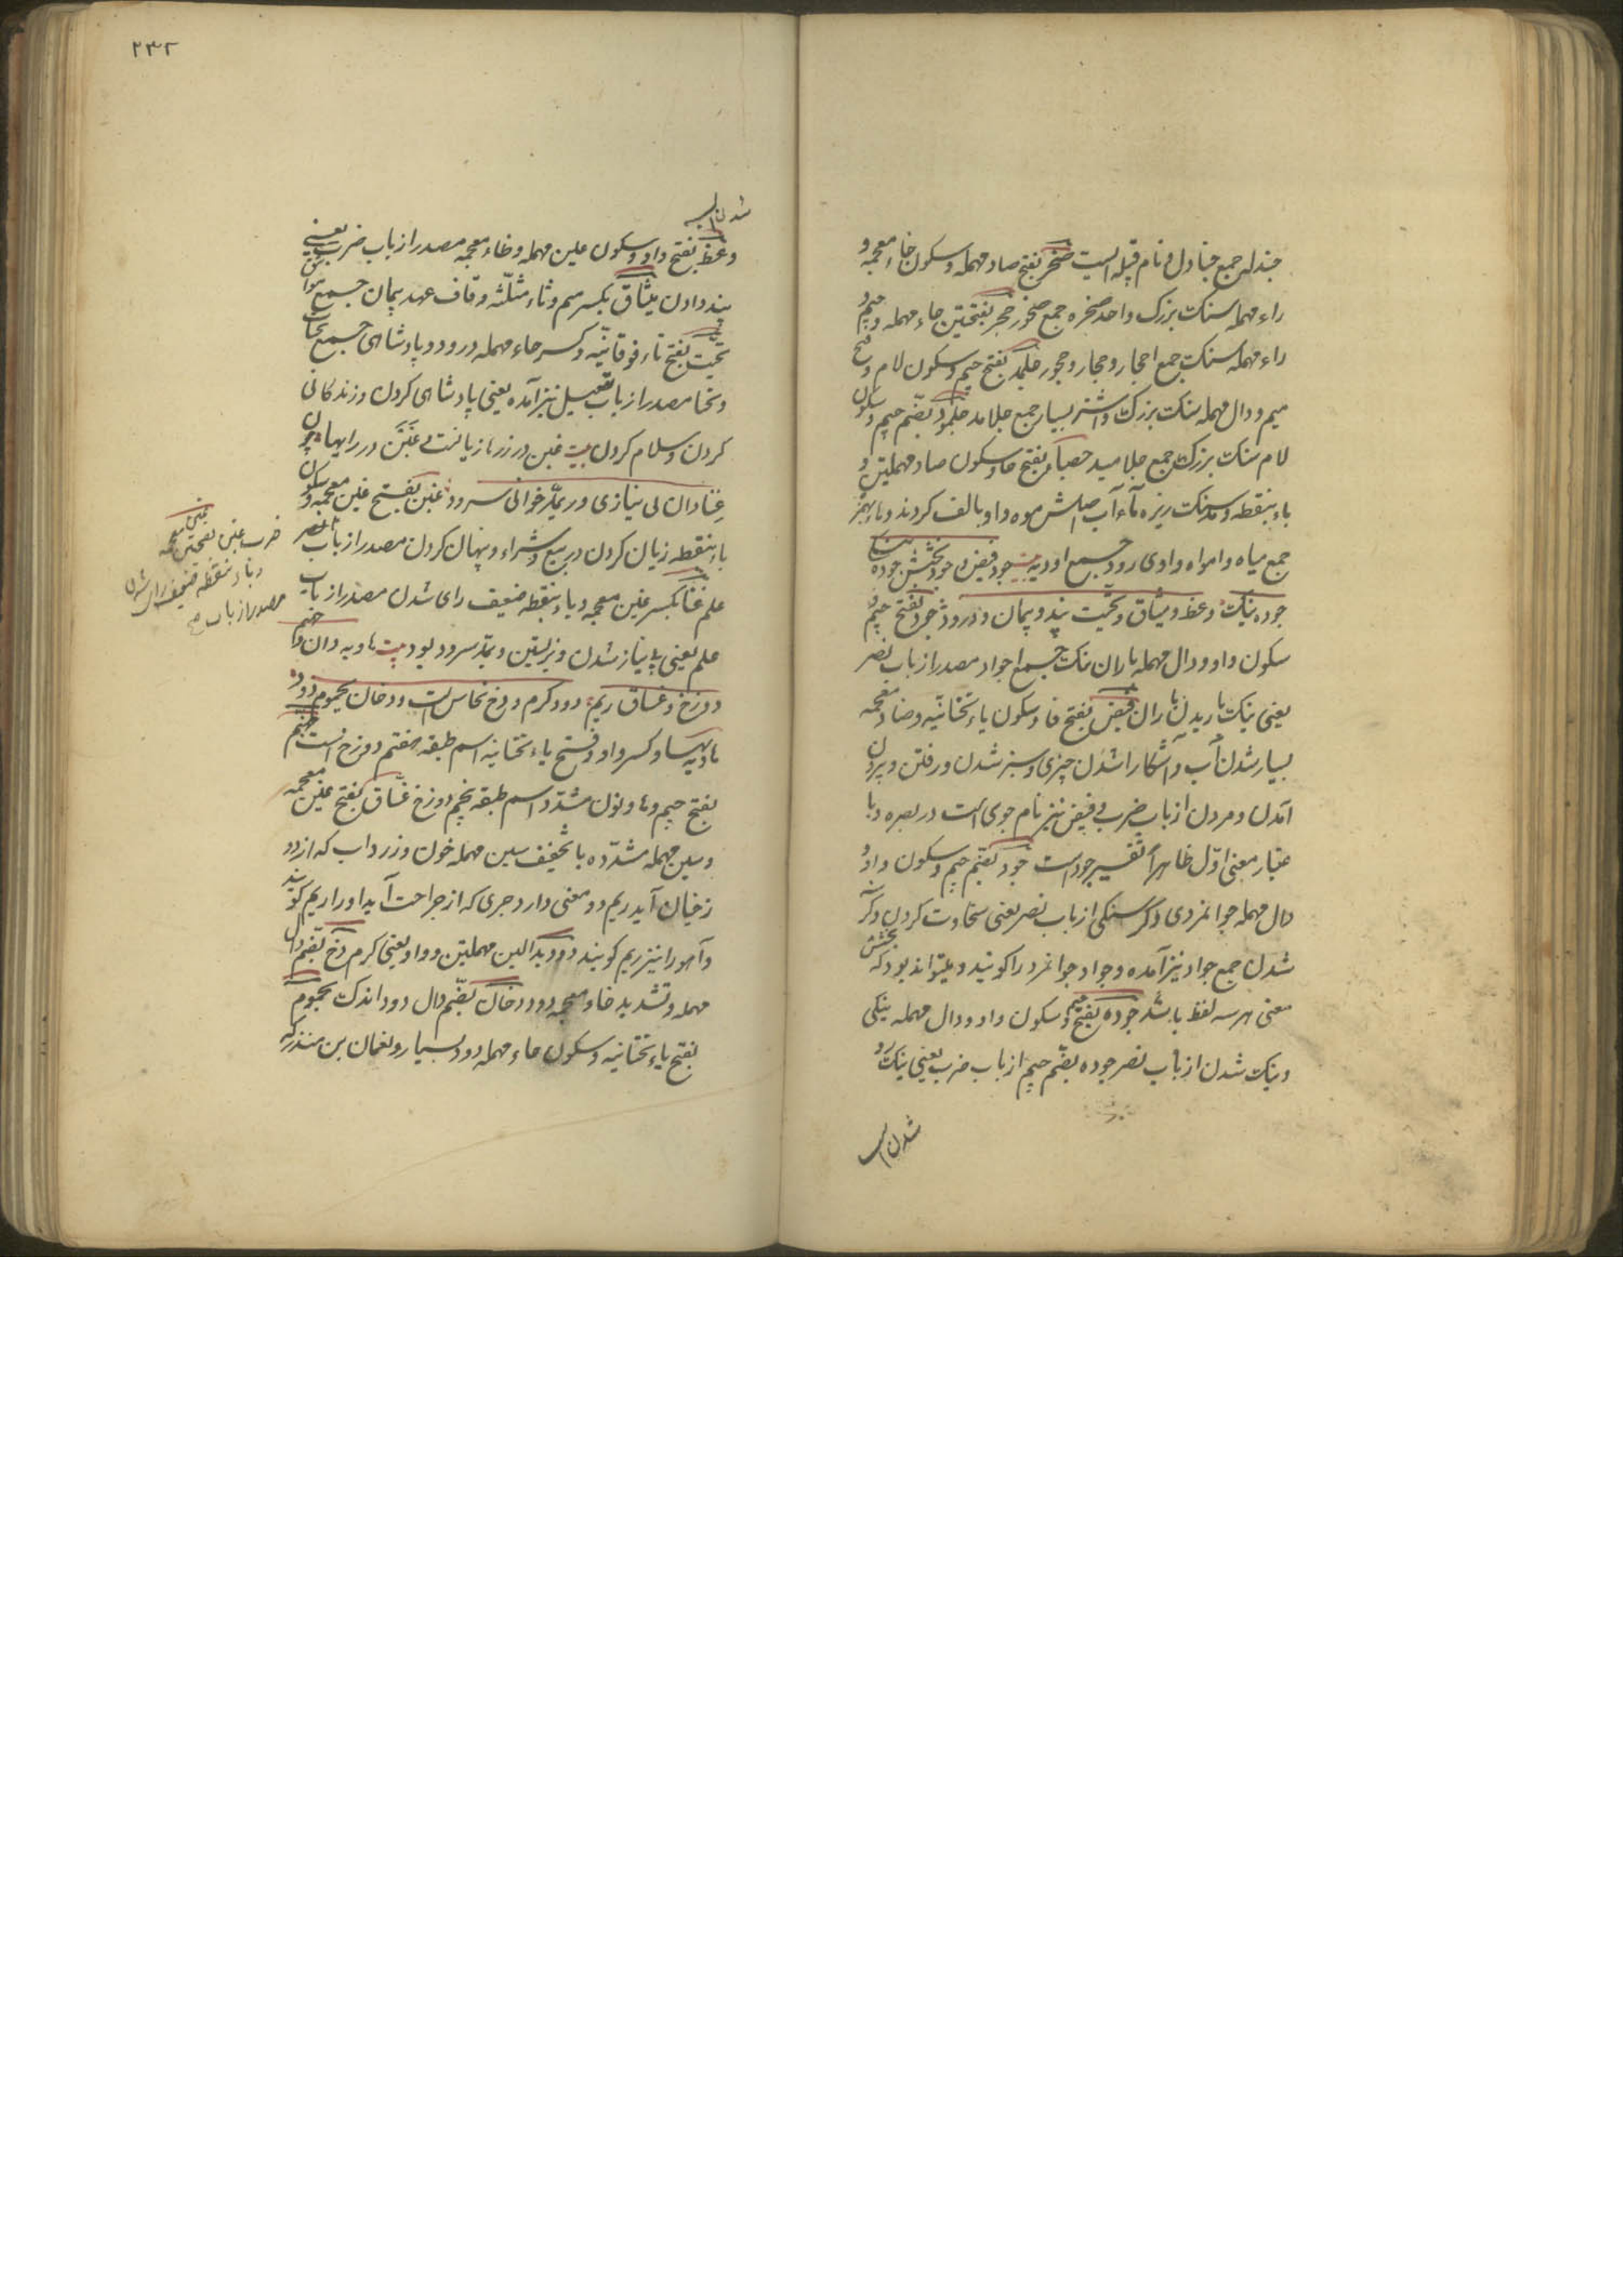 جندله جمع جنادل و نام قبیله ایست صخر بفتح صاد مهمله و سکون خاء معجمه و
راء مهمله سنک بزرک واحد صخره جمع صخور حجر بفتحتین حاء مهمله و جیم و
راء مهمله سنک جمع احجار و حجار و حجور جلمد بفتح جیم و سکون لام و فتح
میم و دال مهمله سنک بزرک و اشتر بسیار جمع جلامد جلمود بضم جیم و سکون
لام سنک بزرک جمع جلامید حصباء بفتح حا و سکون صاد مهملتین و
باء بنقطه و مد سنک ریزه ماء آب اصلش موه واو بالف کردند و هاء بهمز
جمع میاه و امواه وادی رود جمع اودیه بیت جود فیض و جود بخشش جوده
جوده نیک وعظ و میثاق و تحیت پند و پیمان و درود جود بفتح جیم و
سکون واو و دال مهمله باران نیک جمع اجواد مصدر از باب نصر
یعنی نیک باریدن باران فیض بفتح فا و سکون یاء تحتانیه و ضاد معجمه
بسیار شدن آب و آشکارا شدن چیزی و سبز شدن و رفتن و برون
آمدن و مردن از باب ضرب و فیض نیز نام جوی است در بصره و با
عتبار معنی اول ظاهرا تفسیر جود است جود بضم جیم و سکون واو و
دال مهمله جوانمردی و کرسنکی از باب نصر یعنی سخاوت کردن و کرسنه
شدن جمع جواد نیز آمده و جواد جوانمرد را کویند و میتواند بود که بخشش
معنی هر سه لفظ باشد جوده بفتح جیم و سکون واو و دال مهمله نیکی
و نیک شدن از باب نصر جوده بضم جیم از باب ضرب یعنی نیک رو
شدن اسب
۲۳۲
شدن اسب
وعظ بفتح واو و سکون عین مهمله و ظاء معجمه مصدر از باب ضرب یعنی
پند دادن میثاق بکسر میم و ثاء مثلثه و قاف عهد پیمان جمع مواثیق
تحیت بفتح تاء فوقانیه و کسر حاء مهمله درود و پادشاهی جمع تحیات
و تحایا مصدر از باب تفعیل نیز آمده یعنی پادشاهی کردن و زندکانی
کردن و سلام کردن بیت غبن در زرها زیانست و غبن در رایها چون
غنا دان بی نیازی ور بمد خوانی سرود غبن بفتح غین معجمه و سکون
باء بنقطه زیان کردن در بیع و شراء و پنهان کردن مصدر از باب نصر
علم غنا بکسر غین معجمه و باء بنقطه ضعیف رای شدن مصدر از باب
علم یعنی بی نیاز شدن و زیستن و بمد سرود بود بیت هاویه دان و جهنم
دوزخ و غساق ریم دود کرم و دخ نحاس است و دخان یحموم دود
هاویه بها و کسر واو و فتح یاء تحتانیه اسم طبقه هفتم دوزخ است جهنم
بفتح جیم و ها و نون مشدد اسم طبقه پنجم دوزخ غساق بفتح غین معجمه
و سین مهمله مشدده با تخفیف سین مهمله خون و زرداب که از دوز
خیان آید ریم دو معنی دارد جری که از جراحت آید او را ریم کویند
و آهو را نیز ریم کویند دود بدالین مهملتین و واو یعنی کرم دخ بضم دال
مهمله و تشدید خاء معجمه دود دخان بضم دال دود اندک یحموم
بفتح یاء تحتانیه و سکون حاء مهمله دود بسیار و نعمان بن منذر که
غین معجمه
ضرب غبن بفتحتین
و باء بنقطه ضعیف رای شدن
مصدر از باب صح